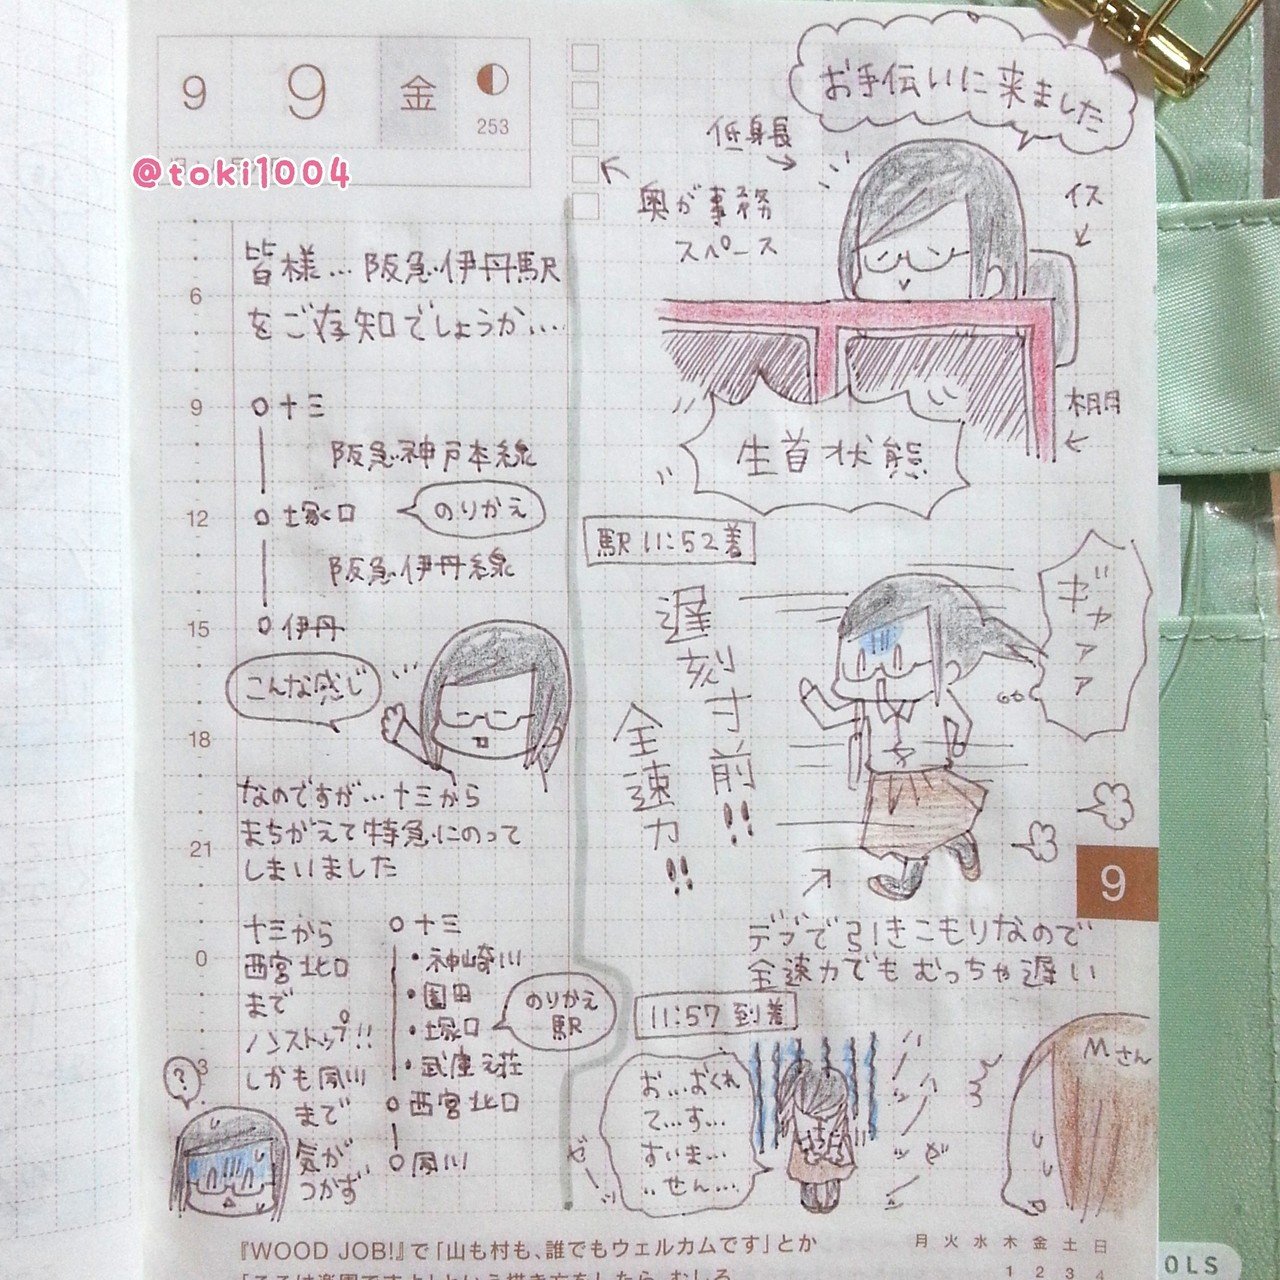 9 9 金
253
@toki1004
皆様…阪急伊丹駅
をご存知でしょうか…
6
9
12
15
18
21
0
3
十三
阪急神戸本線
塚口
のりかえ
阪急伊丹線
伊丹
こんな感じ
なのですが…十三から
まちがえて特急にのって
しまいました
十三から
西宮北口
まで
ノンストップ!!
しかも夙川
まで
気が
つかず
?
十三
・神崎川
・園田
・塚口
のりかえ
駅
・武庫之荘
西宮北口
夙川
お手伝いに来ました
低身長
奥が事務
スペース
イス
棚
生首状態
駅11:52着
遅刻寸前!!
全速力!!
ギャァァァ
デブで引きこもりなので
全速力でもむっちゃ遅い
11:57到着
お…おくれ
て…す…
すいま…
…せん…
Mさん
9
『WOOD JOB!』で「山も村も、誰でもウェルカムです」とか
月 火 水 木 金 土 日
1 2 3 4
OLS